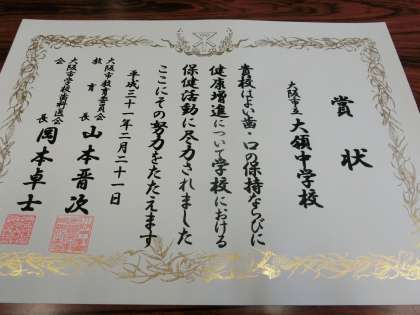 賞状
大阪市立 大領中学校
貴校はよい歯・口の保持ならびに
健康増進について学校における
保健活動に尽力されました
ここにその努力をたたえます
平成三十一年二月二十一日
大阪市教育委員会
教育長 山本晋次
大阪市学校歯科医会
会長 岡本卓士